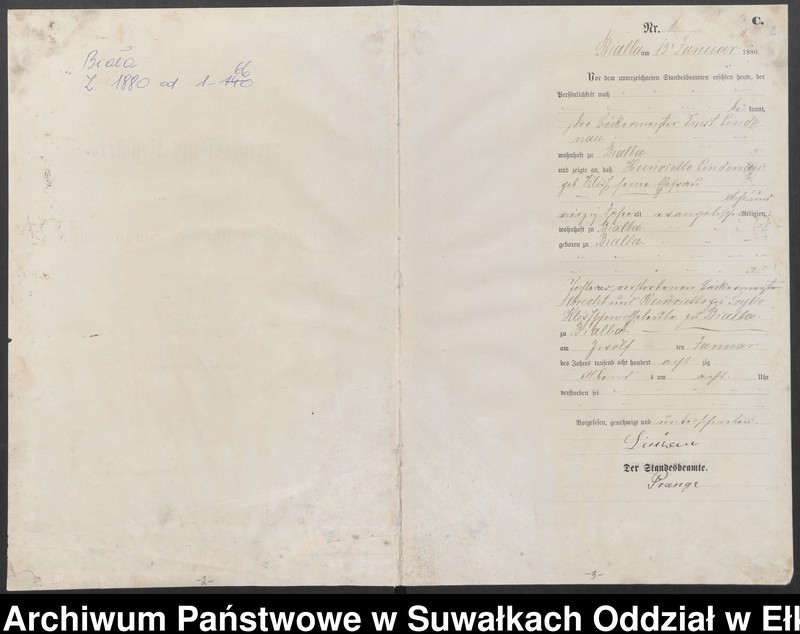 Biała
Z 1880 od 1-110
66
C.
Nr. 1
Bialla am 13 Januar 1880.
Vor dem unterzeichneten Standesbeamten erschien heute, der
Persönlichkeit nach
be kannt,
der Bäckermeister Ernst
wohnhaft zu Bialla
und zeigte an, daß Henriette
geb. seine Ehefrau
acht und
vierzig Jahre alt evangelischer Religion,
wohnhaft zu Bialla
geboren zu Bialla
Tochter verstorbenen Bäckermeister
und Henriette geb.
Eheleute zu Bialla
zu Bialla
am Zwölf ten Januar
des Jahres tausend acht hundert acht zig
Abend s um acht Uhr
verstorben sei
Vorgelesen, genehmigt und unterschrieben.
Der Standesbeamte.
Prange
-2-
-3-
Archiwum Państwowe w Suwałkach Oddział w Ełk